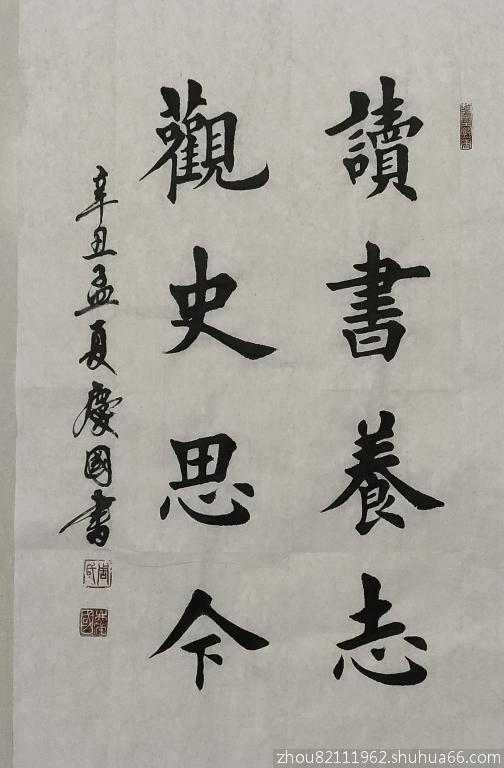 讀書養志
觀史思今
辛丑孟夏慶國書
周氏
zhou82111962.shuhua66.com